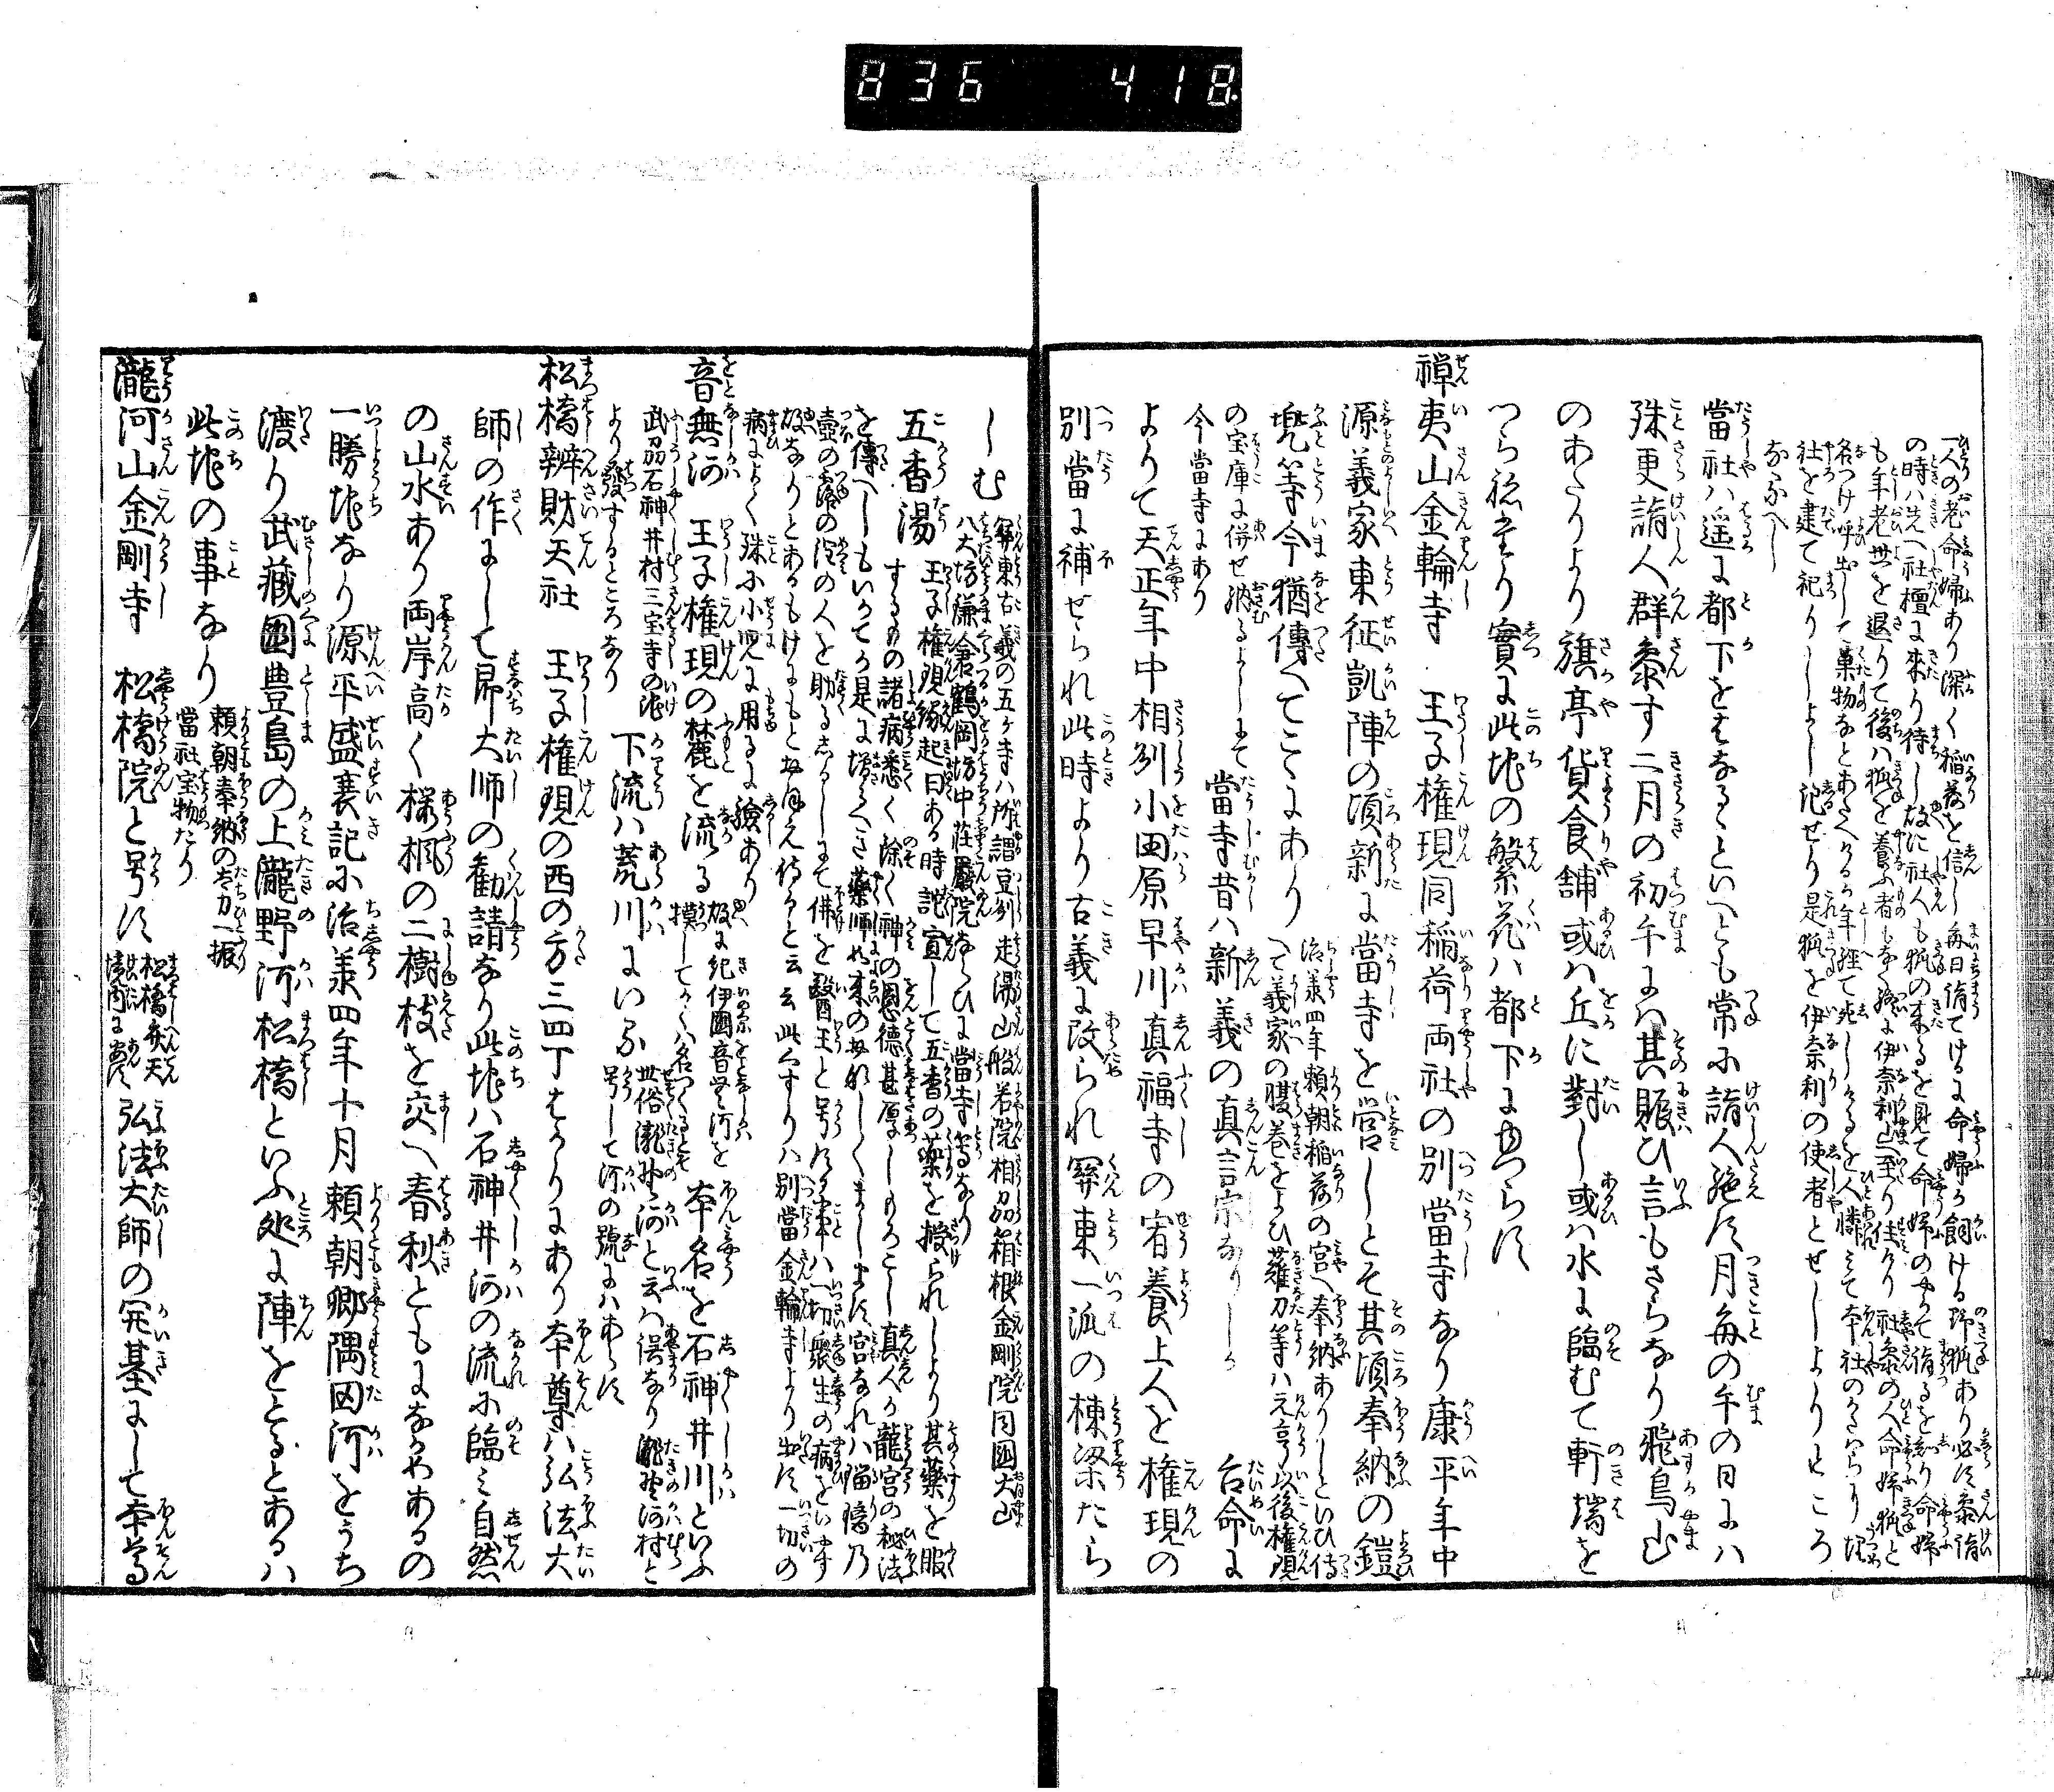 836 418
一人の老命婦あり深く稲荷を信し毎日詣てけるに命婦か飼ける野狐あり必す参詣
の時ハ先へ社檀に来り待し故に社人も狐の来るを見て命婦のやかて詣るを知り命婦
も年老世を退りて後ハ狐を養ふ者もなく終に伊奈利山へ至り住り社参の人命婦狐と
名つけ呼出して菓物なとあたへけるか年経て死しけるを人憐ミて本社のかたハらに埋
社を建て祀りしよし記せり是狐を伊奈利の使者とせしよりところ
なるへし
當社ハ遥に都下をはなるといへとも常に詣人絶す月毎の午の日にハ
殊更詣人群参す二月の初午にハ其賑ひ言もさらなり飛鳥山
のあたりより旗亭貨食舗或ハ丘に對し或ハ水に臨むて軒端を
つらねたり實に此地の繁花ハ都下にゆつらす
禅夷山金輪寺 王子権現同稲荷両社の別當寺なり康平年中
源義家東征凱陣の頃新に當寺を営しとそ其頃奉納の鎧
兜等今猶傳へてこゝにあり
治承四年頼朝稲荷の宮へ奉納ありしといひ傳
へて義家の腹巻をよひ薙刀等ハ元亨以後権現
の宝庫に併せ納るよしにて
今當寺にあり
當寺昔ハ新義の真言宗なりしか 台命に
よりて天正年中相刕小田原早川真福寺の宥養上人を権現の
別當に補せられ此時より古義に改られ関東一派の棟梁たら
しむ
関東古義の五ヶ寺ハ所謂豆刕走湯山般若院相刕箱根金剛院同國大山
八大坊鎌倉鶴岡坊中荘厳院ならひに當寺等なり
五香湯
王子権現縁起曰ある時詫宣して五香の薬を授られしより其薬を服
するもの諸病悉く除く神の恩徳甚厚しもろこし真人か龍宮の秘法
を傳へしもいかてか是に増るへき薬師如来の如しくましませす宮なれハ瑙璃乃
壺の露の泠の人を助るしるしにて佛を醫王と号す本ハ一切衆生の病をいやす
故なりとあるもけにもと如えへ侍ると云云此くすりハ別當金輪寺より出す一切の
病によく殊に小児に用るに験あり
音無河 王子権現の麓を流る
故に紀伊國音無河を
摸してかくハ名つくるとそ
本名を石神井川といふ
武刕石神井村三宝寺の池
より發するところなり
下流ハ荒川にいる
世俗瀧野河と云ハ誤なり瀧野河村と
号して河の號にハあらす
松橋辨財天社 王子権現の西の方三四丁はかりにあり本尊ハ弘法大
師の作にして即大師の勧請なり此地ハ石神井河の流に臨ミ自然
の山水あり両岸高く櫻楓の二樹枝を交へ春秋ともになかめあるの
一勝地なり源平盛衰記に治承四年十月頼朝卿隅田河をうち
渡り武蔵國豊島の上瀧野河松橋といふ処に陣をとるとあるハ
此地の事なり
頼朝奉納の太刀一振
當社宝物たり
瀧河山金剛寺 松橋院と号す
松橋弁天
境内に安す
弘法大師の開基にして本尊